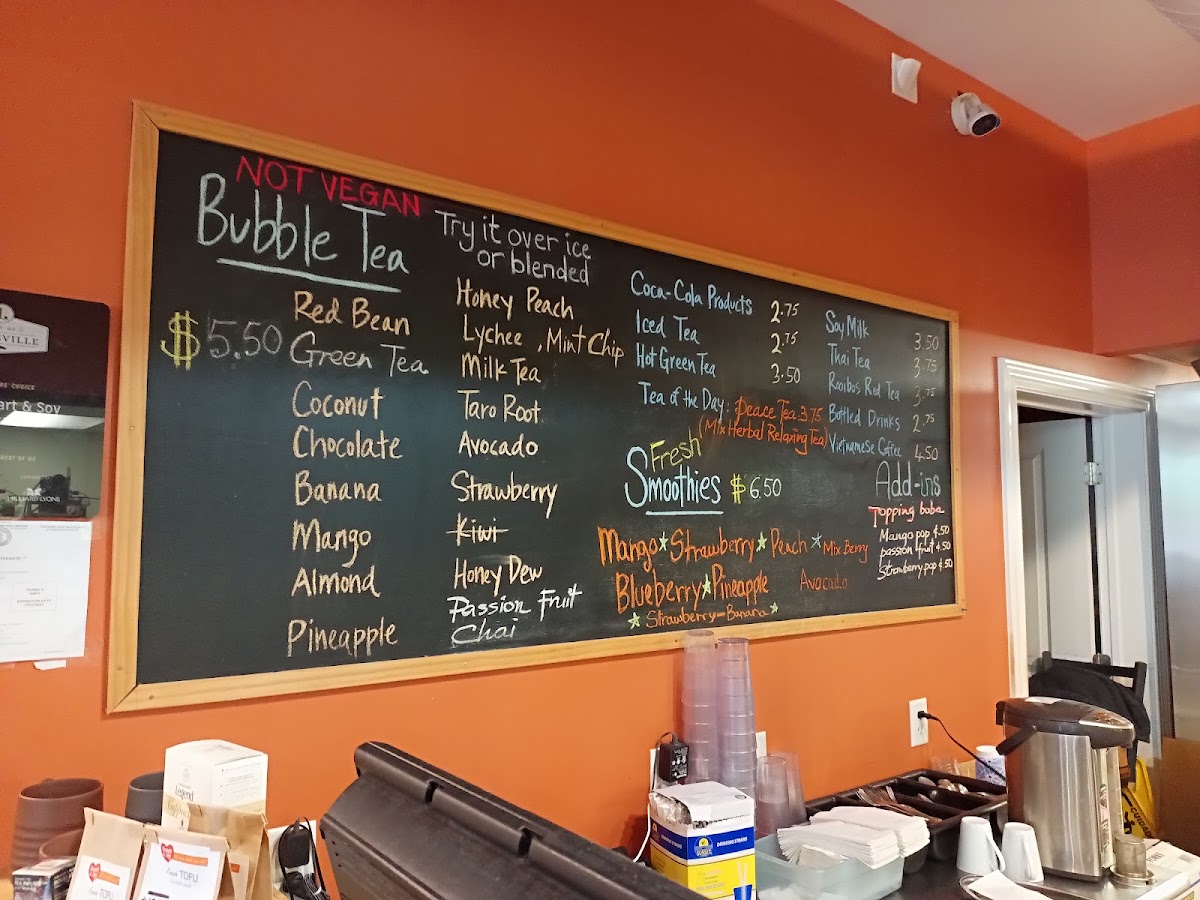 NOT VEGAN
Bubble Tea
$5.50
Red Bean
Green Tea
Coconut
Chocolate
Banana
Mango
Almond
Pineapple
Try it over ice
or blended
Honey Peach
Lychee, Mint Chip
Milk Tea
Taro Root
Avocado
Strawberry
Kiwi
Honey Dew
Passion Fruit
Chai
Coca-Cola Products 2.75
Iced Tea 2.75
Hot Green Tea 3.50
Tea of the Day: Peace Tea 3.75
(Mix Herbal Relaxing Tea)
Soy Milk 3.50
Thai Tea 3.75
Rooibos Red Tea 3.75
Bottled Drinks 2.75
Vietnamese Coffee 4.50
Fresh
Smoothies $6.50
Mango ★ Strawberry ★ Peach ★ Mix Berry
Blueberry ★ Pineapple Avocado
★ Strawberry-Banana ★
Add-ins
Topping boba
Mango pop $.50
passion fruit $.50
Strawberry pop $.50
art & Soy
HILLIARD LYONS
Legend
TOFU
TOFU